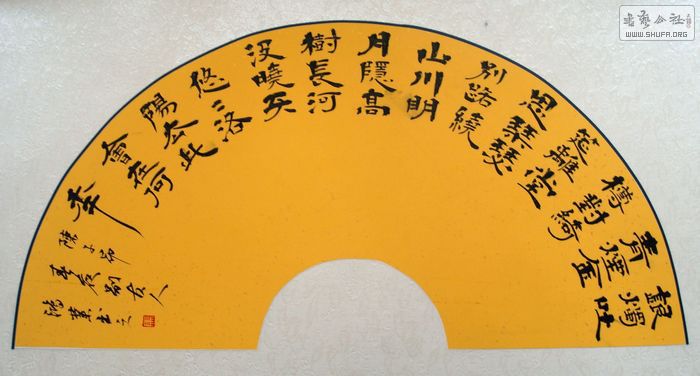 銀燭吐
青煙金
樽對綺
筵離堂
思琴瑟
別路繞
山川明
月隱高
樹長河
没曉天
悠〻洛
陽去此
會在何
年
陳子昂
春夜別友人
鴻業书
書藝公社
WWW.SHUFA.ORG